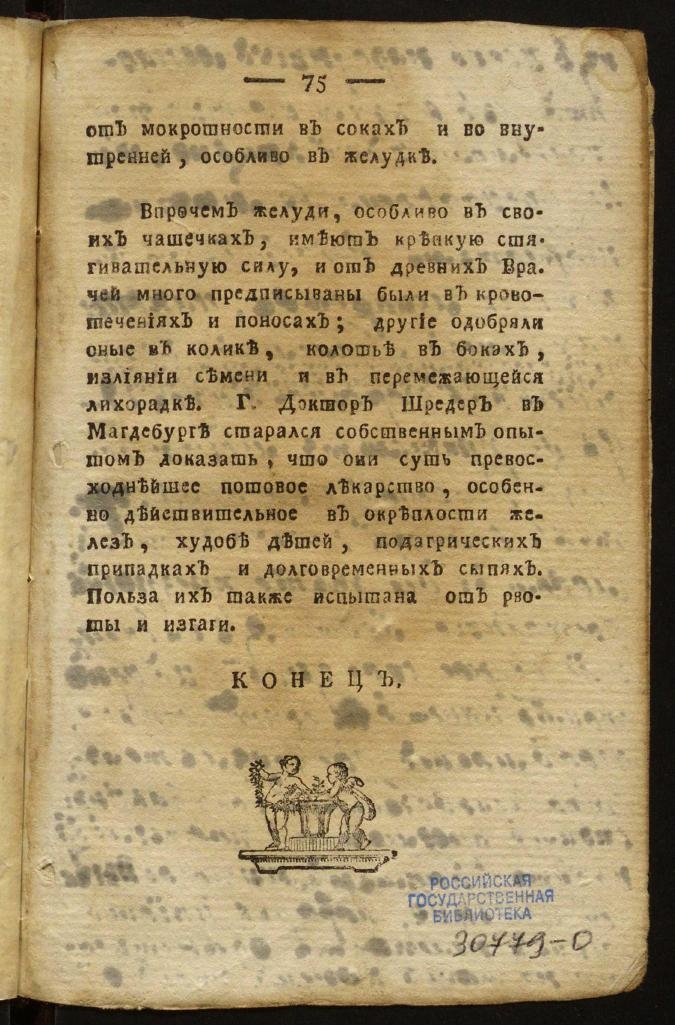 — 75 —
отъ мокротности въ сокахъ и во вну-
тренней, особливо въ желудкѣ.
Впрочемъ желуди, особливо въ сво-
ихъ чашечкахъ, имѣютъ крѣпкую стя-
гивательную силу, и отъ древнихъ Вра-
чей много предписываны были въ крово-
теченіяхъ и поносахъ; другіе одобряли
оные въ коликѣ, колотьѣ въ бокахъ,
изліяніи сѣмени и въ перемежающейся
лихорадкѣ. Г. Докторъ Шредеръ въ
Магдебургѣ старался собственнымъ опы-
томъ доказать, что они суть превос-
ходнѣйшее потовое лѣкарство, особен-
но дѣйствительное въ окрѣплости же-
лезъ, худобѣ дѣтей, подагрическихъ
припадкахъ и долговременныхъ сыпяхъ.
Польза ихъ также испытана отъ рво-
ты и изгаги.
КОНЕЦЪ.
РОССИЙСКАЯ
ГОСУДАРСТВЕННАЯ
БИБЛИОТЕКА
30779-0